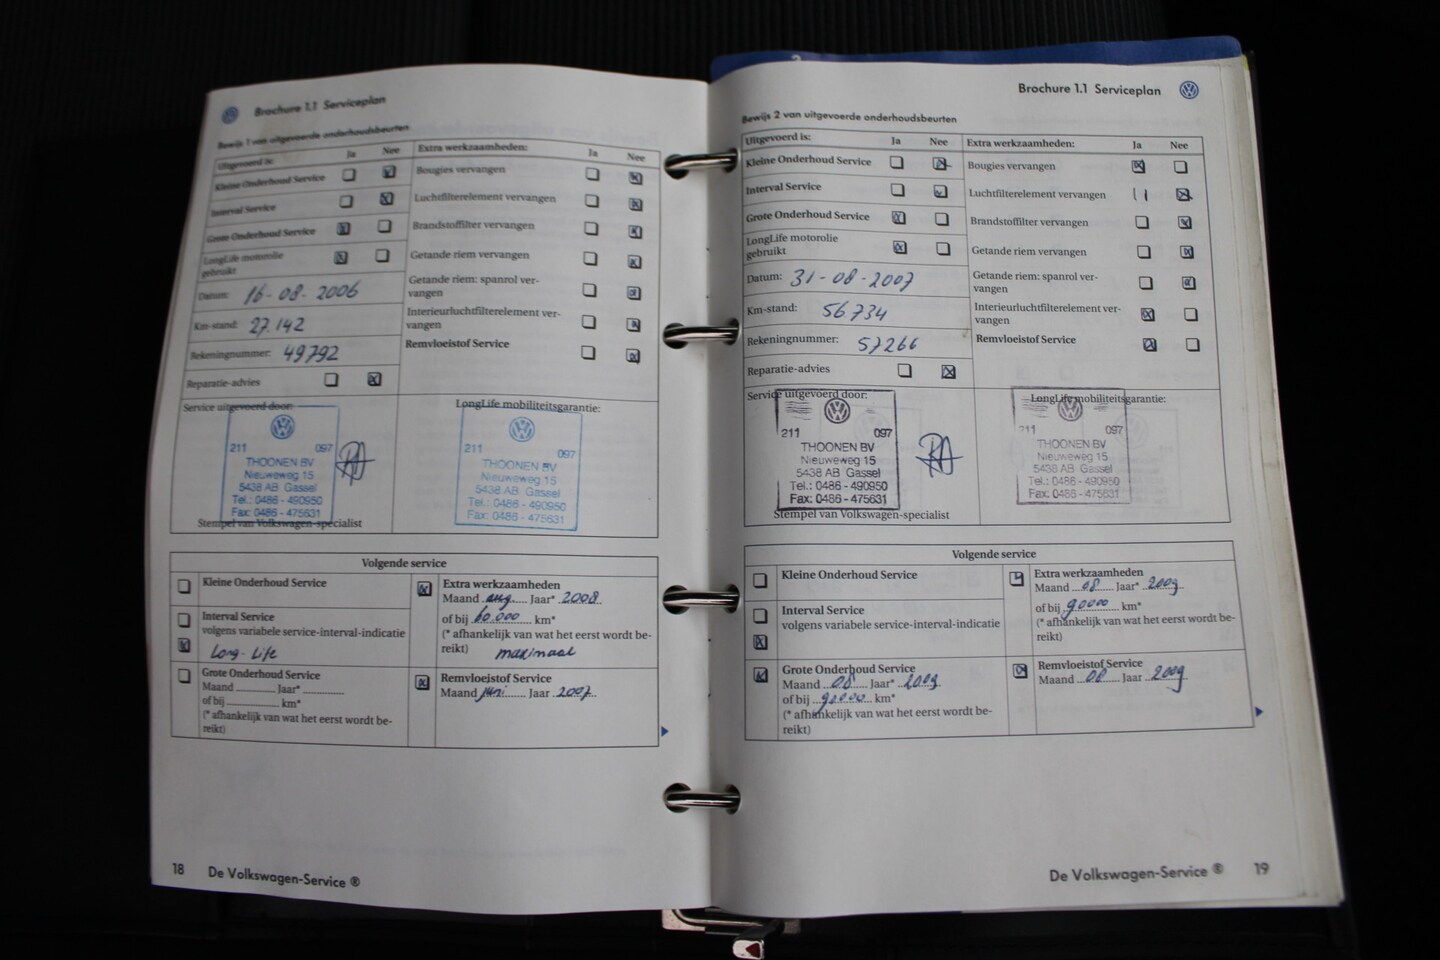 Brochure 1.1 Serviceplan
Bewijs 1 van uitgevoerde onderhoudsbeurten
Uitgevoerd is: Ja Nee
Kleine Onderhoud Service
Interval Service
Grote Onderhoud Service
LongLife motorolie
gebruikt
Datum: 16-08-2006
Km-stand: 27.142
Rekeningnummer: 49792
Reparatie-advies
Extra werkzaamheden: Ja Nee
Bougies vervangen
Luchtfilterelement vervangen
Brandstoffilter vervangen
Getande riem vervangen
Getande riem: spanrol ver-
vangen
Interieurluchtfilterelement ver-
vangen
Remvloeistof Service
Service uitgevoerd door:
211 097
THOONEN BV
Nieuweweg 15
5438 AB Gassel
Tel.: 0486 - 490950
Fax: 0486 - 475631
Stempel van Volkswagen-specialist
LongLife mobiliteitsgarantie:
211 097
THOONEN BV
Nieuweweg 15
5438 AB Gassel
Tel.: 0486 - 490950
Fax: 0486 - 475631
Volgende service
Kleine Onderhoud Service
Interval Service
volgens variabele service-interval-indicatie
Long-Life
Grote Onderhoud Service
Maand Jaar*
of bij km*
(* afhankelijk van wat het eerst wordt be-
reikt)
Extra werkzaamheden
Maand aug. Jaar* 2008
of bij 60.000 km*
(* afhankelijk van wat het eerst wordt be-
reikt) maximaal
Remvloeistof Service
Maand juni Jaar 2007
18 De Volkswagen-Service ®
Brochure 1.1 Serviceplan
Bewijs 2 van uitgevoerde onderhoudsbeurten
Uitgevoerd is: Ja Nee
Kleine Onderhoud Service
Interval Service
Grote Onderhoud Service
LongLife motorolie
gebruikt
Datum: 31-08-2007
Km-stand: 56.734
Rekeningnummer: 57266
Reparatie-advies
Extra werkzaamheden: Ja Nee
Bougies vervangen
Luchtfilterelement vervangen
Brandstoffilter vervangen
Getande riem vervangen
Getande riem: spanrol ver-
vangen
Interieurluchtfilterelement ver-
vangen
Remvloeistof Service
Service uitgevoerd door:
211 097
THOONEN BV
Nieuweweg 15
5438 AB Gassel
Tel.: 0486 - 490950
Fax: 0486 - 475631
Stempel van Volkswagen-specialist
LongLife mobiliteitsgarantie:
211 097
THOONEN BV
Nieuweweg 15
5438 AB Gassel
Tel.: 0486 - 490950
Fax: 0486 - 475631
Volgende service
Kleine Onderhoud Service
Interval Service
volgens variabele service-interval-indicatie
Grote Onderhoud Service
Maand 08 Jaar* 2009
of bij 90000 km*
(* afhankelijk van wat het eerst wordt be-
reikt)
Extra werkzaamheden
Maand 08 Jaar* 2009
of bij 90000 km*
(* afhankelijk van wat het eerst wordt be-
reikt)
Remvloeistof Service
Maand 08 Jaar 2009
De Volkswagen-Service ® 19